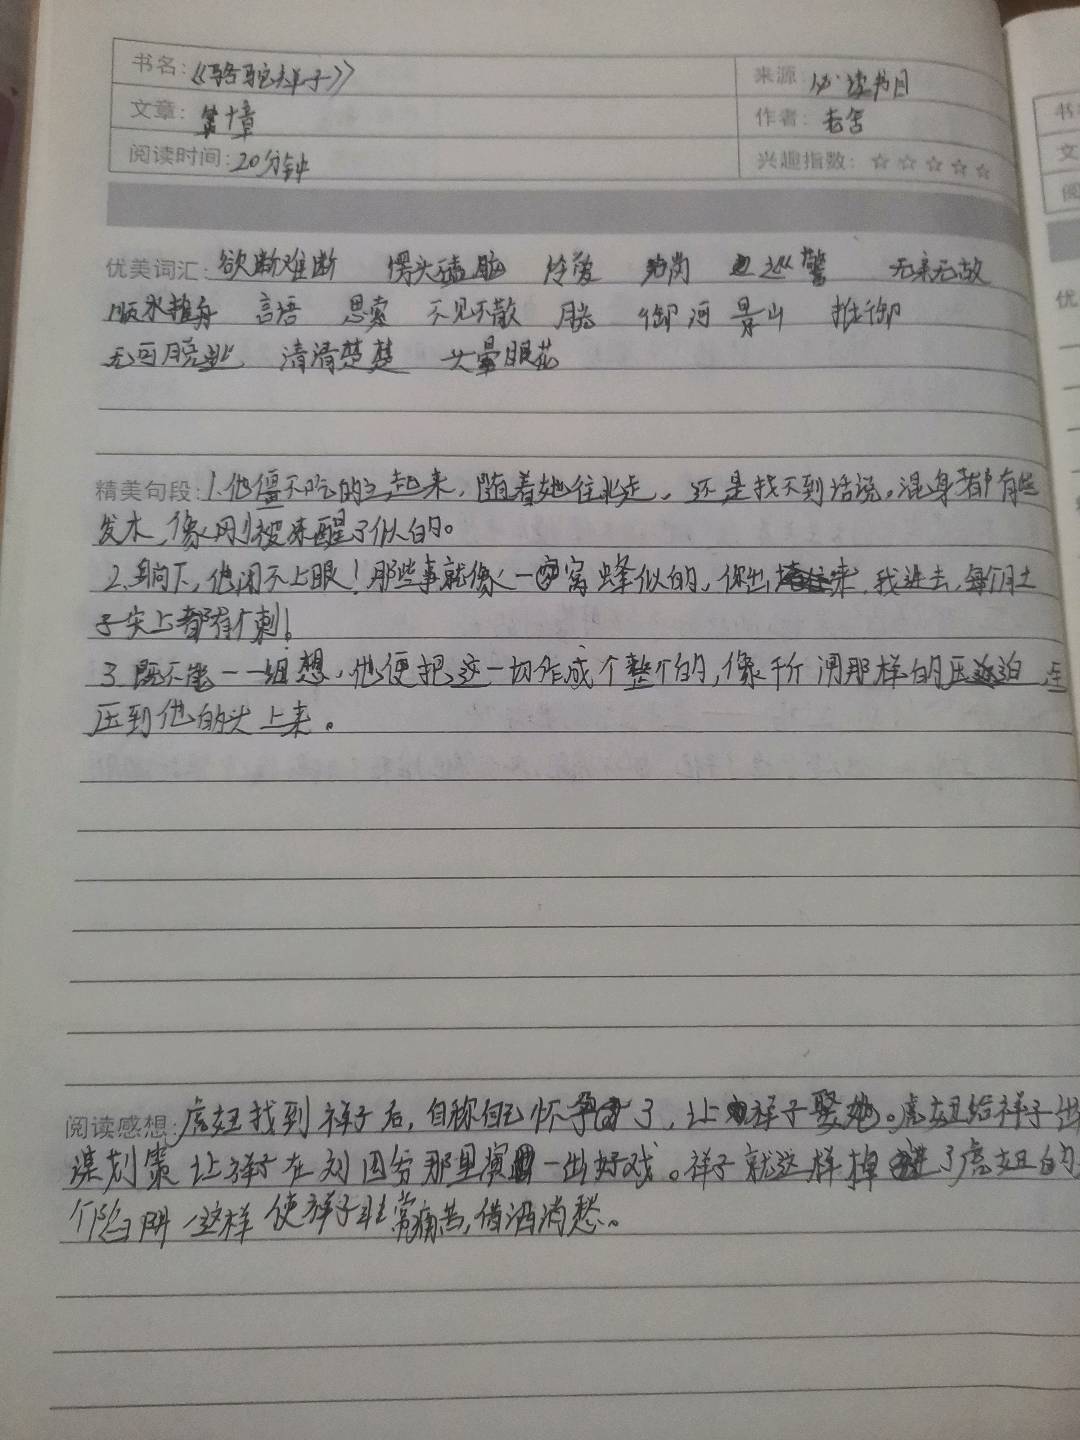 书名:《骆驼祥子》
来源: 必读书目
文章: 第十章
作者: 老舍
阅读时间: 20分钟
兴趣指数: ☆☆☆☆☆
优美词汇: 欲断难断 愣头磕脑 怜爱 站岗 巡警 无亲无故
顺水推舟 言语 思索 不见不散 御河 景山 推卸
无可脱逃 清清楚楚 头晕眼花
精美句段: 1.他僵不吃的立起来,随着她往北走。还是找不到话说,混身都有些
发木,像刚被冻醒了似的。
2.躺下,他闭不上眼!那些事就像一窝蜂似的,你出来,我进去,每个肚
子尖上都有个刺!
3.既不能一一细想,他便把这一切作成个整个的,像千斤闸那样的压迫,全
压到他的头上来。
阅读感想: 虎妞找到祥子后,自称自己怀孕了,让祥子娶她。虎妞给祥子出
谋划策让祥子在刘四爷那里演一出好戏。祥子就这样掉进了虎妞的
个陷阱,这样使祥子非常痛苦,借酒消愁。